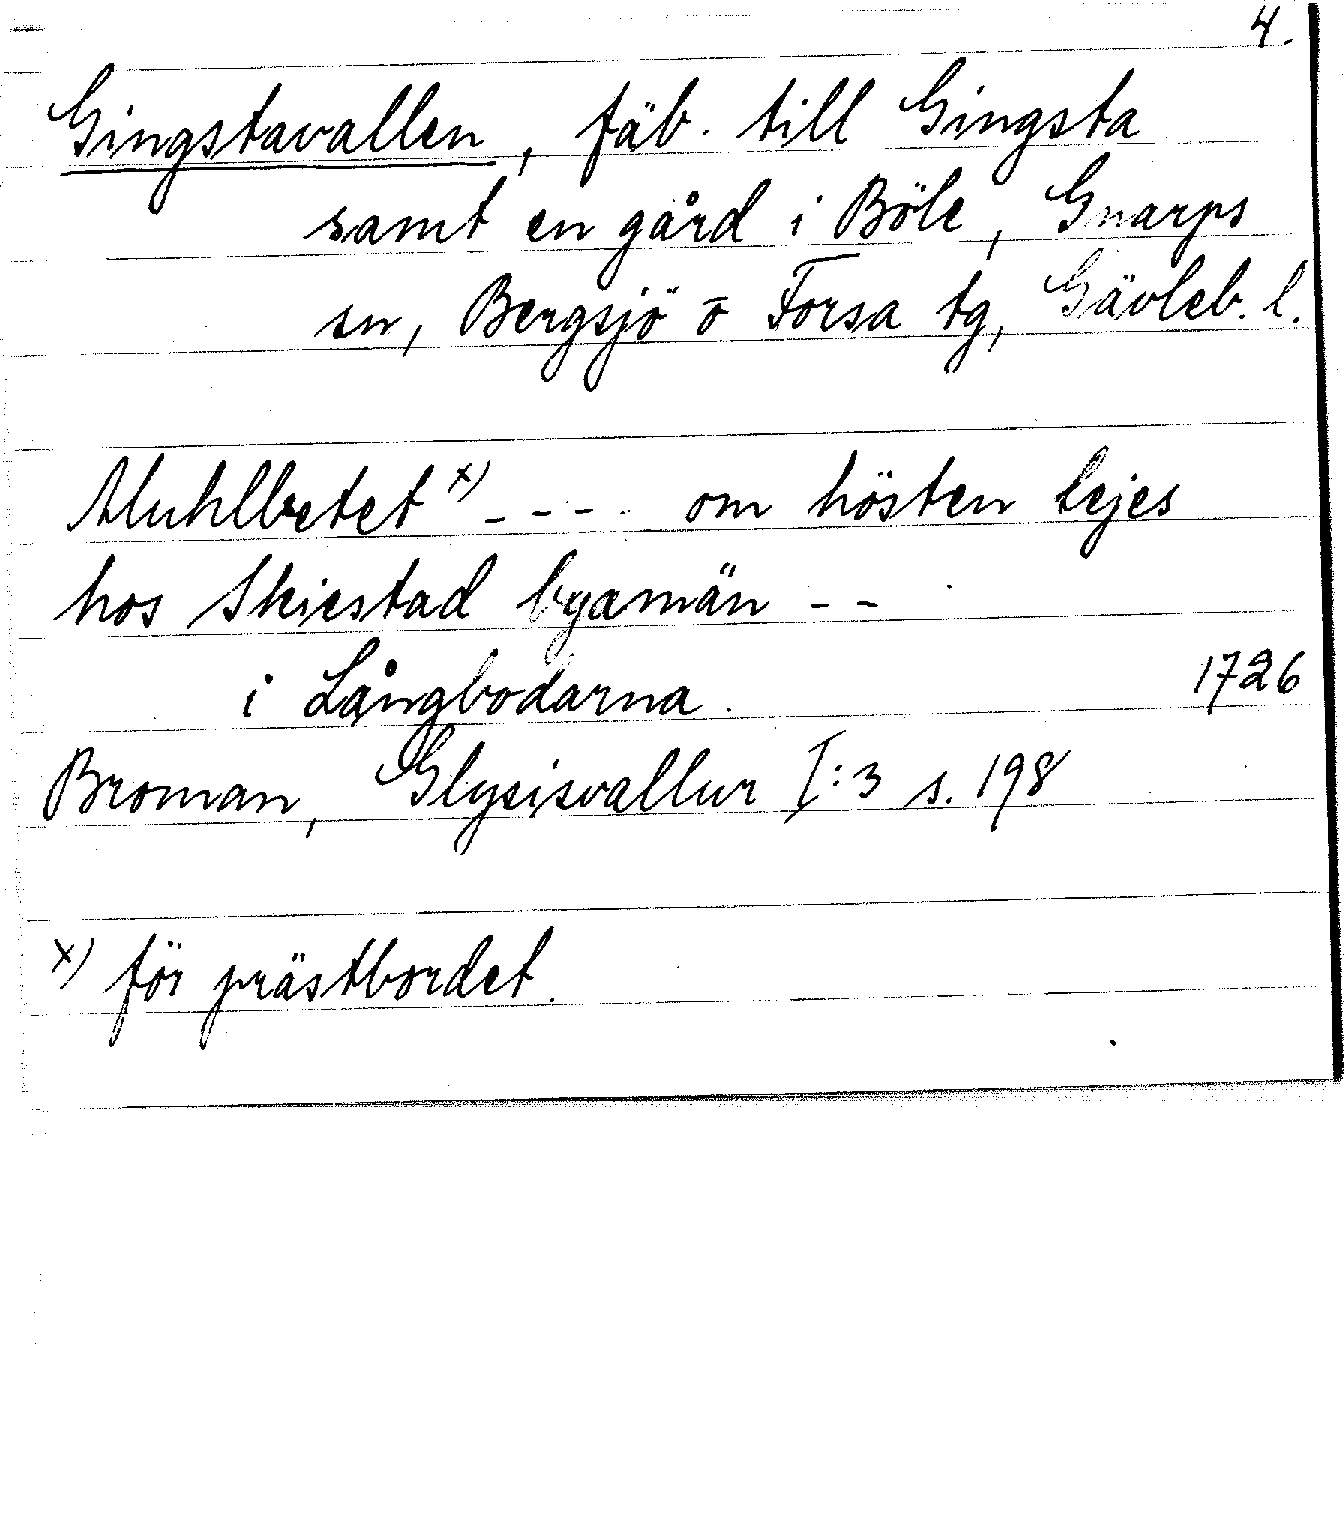 4.
Gingstavallen, fäb. till Gingsta
samt en gård i Böle, Gnarps
sn, Bergsjö o Forsa tg, Gävleb. l.
Muhlbetet x) - - - . om hösten lejes
hos Skiestad byamän - -
i Långbodarna. 1726
Broman, Glysisvallur I:3 s. 198
x) för prästbordet.